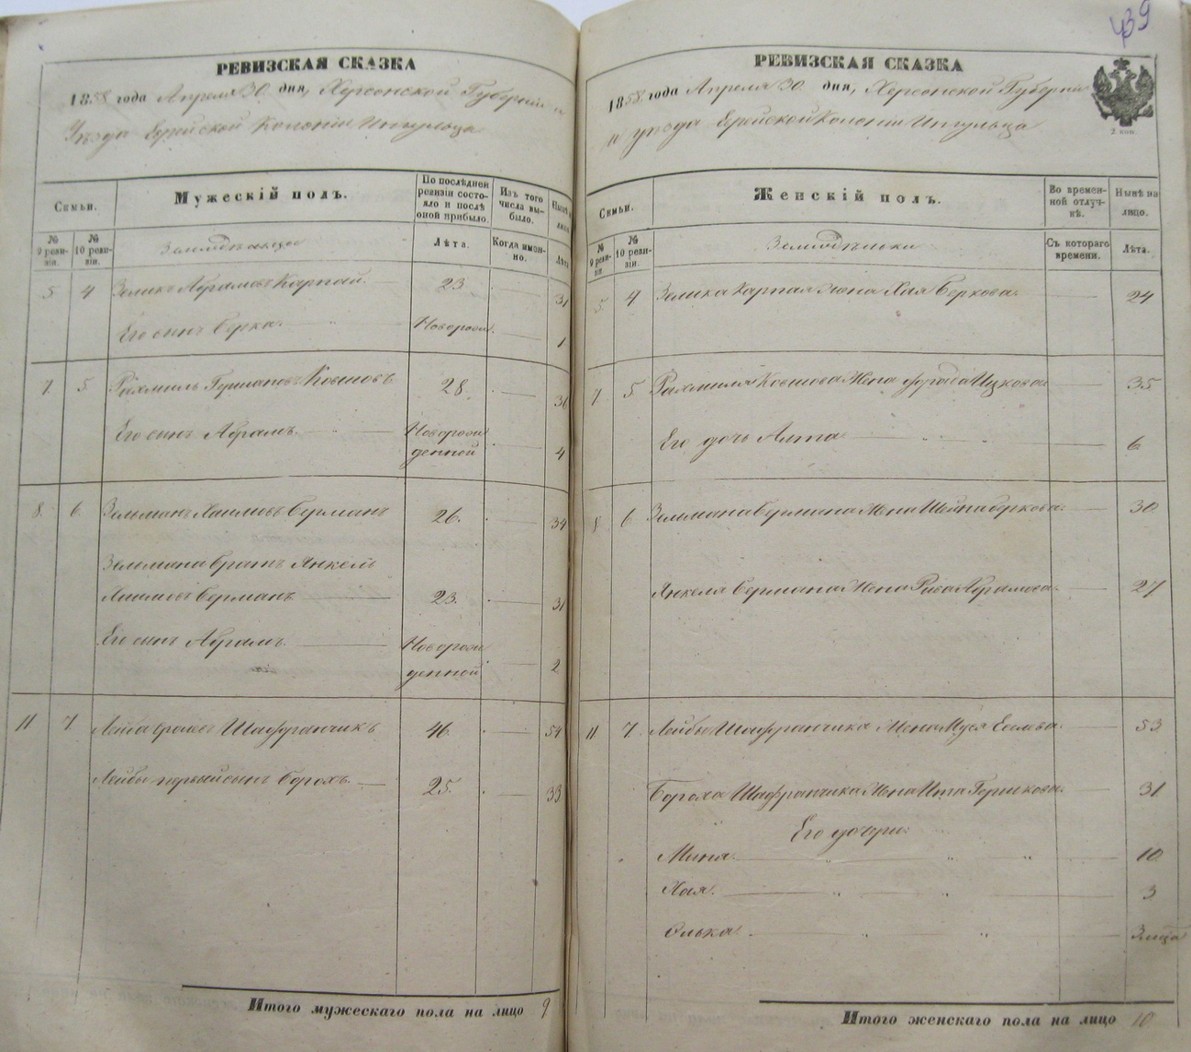 439
РЕВИЗСКАЯ СКАЗКА
1858 года Апреля 30 дня, Херсонской Губерніи и
Уѣзда Еврейской Колоніи Ингульца
Семьи.
Мужескій полъ.
По послѣдней ревизіи состояло и послѣ оной прибыло.
Изъ того числа выбыло.
Нынѣ на лицо.
№ 9 ревизіи.
№ 10 ревизіи.
Земледѣльцы
Лѣта.
Когда именно.
Лѣта
5 4 Зеликъ Абрамовъ Карпай 23 31
Его сынъ Берка Новорожд. 1
7 5 Рахмиль Гершановъ Ковшовъ 28 36
Его сынъ Абрамъ Новорож
денной 4
8 6 Зельманъ Хаимовъ Берманъ 26 34
Зельмана братъ Янкель
Хаимовъ Берманъ 23 31
Его сынъ Абрамъ Новорож
денной 2
11 7 Лейба Шафранчикъ 46 54
Лейбы первый сынъ Борохъ 25 33
Итого мужескаго пола на лицо 9
РЕВИЗСКАЯ СКАЗКА
1858 года Апреля 30 дня, Херсонской Губерніи
и уѣзда Еврейской Колоніи Ингульца
2 коп.
Семьи.
Женскій полъ.
Во временной отлучкѣ.
Нынѣ на лицо.
№ 9 ревизіи
№ 10 ревизіи.
Земледѣльцы
Съ котораго времени.
Лѣта.
5 4 Зелика Карпая Жена Хая Беркова 24
7 5 Рахмиля Ковшова Жена Фрада Ицкова 35
Его дочь Алта 6
8 6 Зельмана Бермана Жена Шейна Беркова 30
Янкеля Бермана Жена Рива Абрамова 27
11 7 Лейбы Шафранчика Жена Муся 53
Бороха Шафранчика Жена Ита Гершкова 31
Его дочери
Мина 10
Хая 3
Элька
Итого женскаго пола на лицо 10